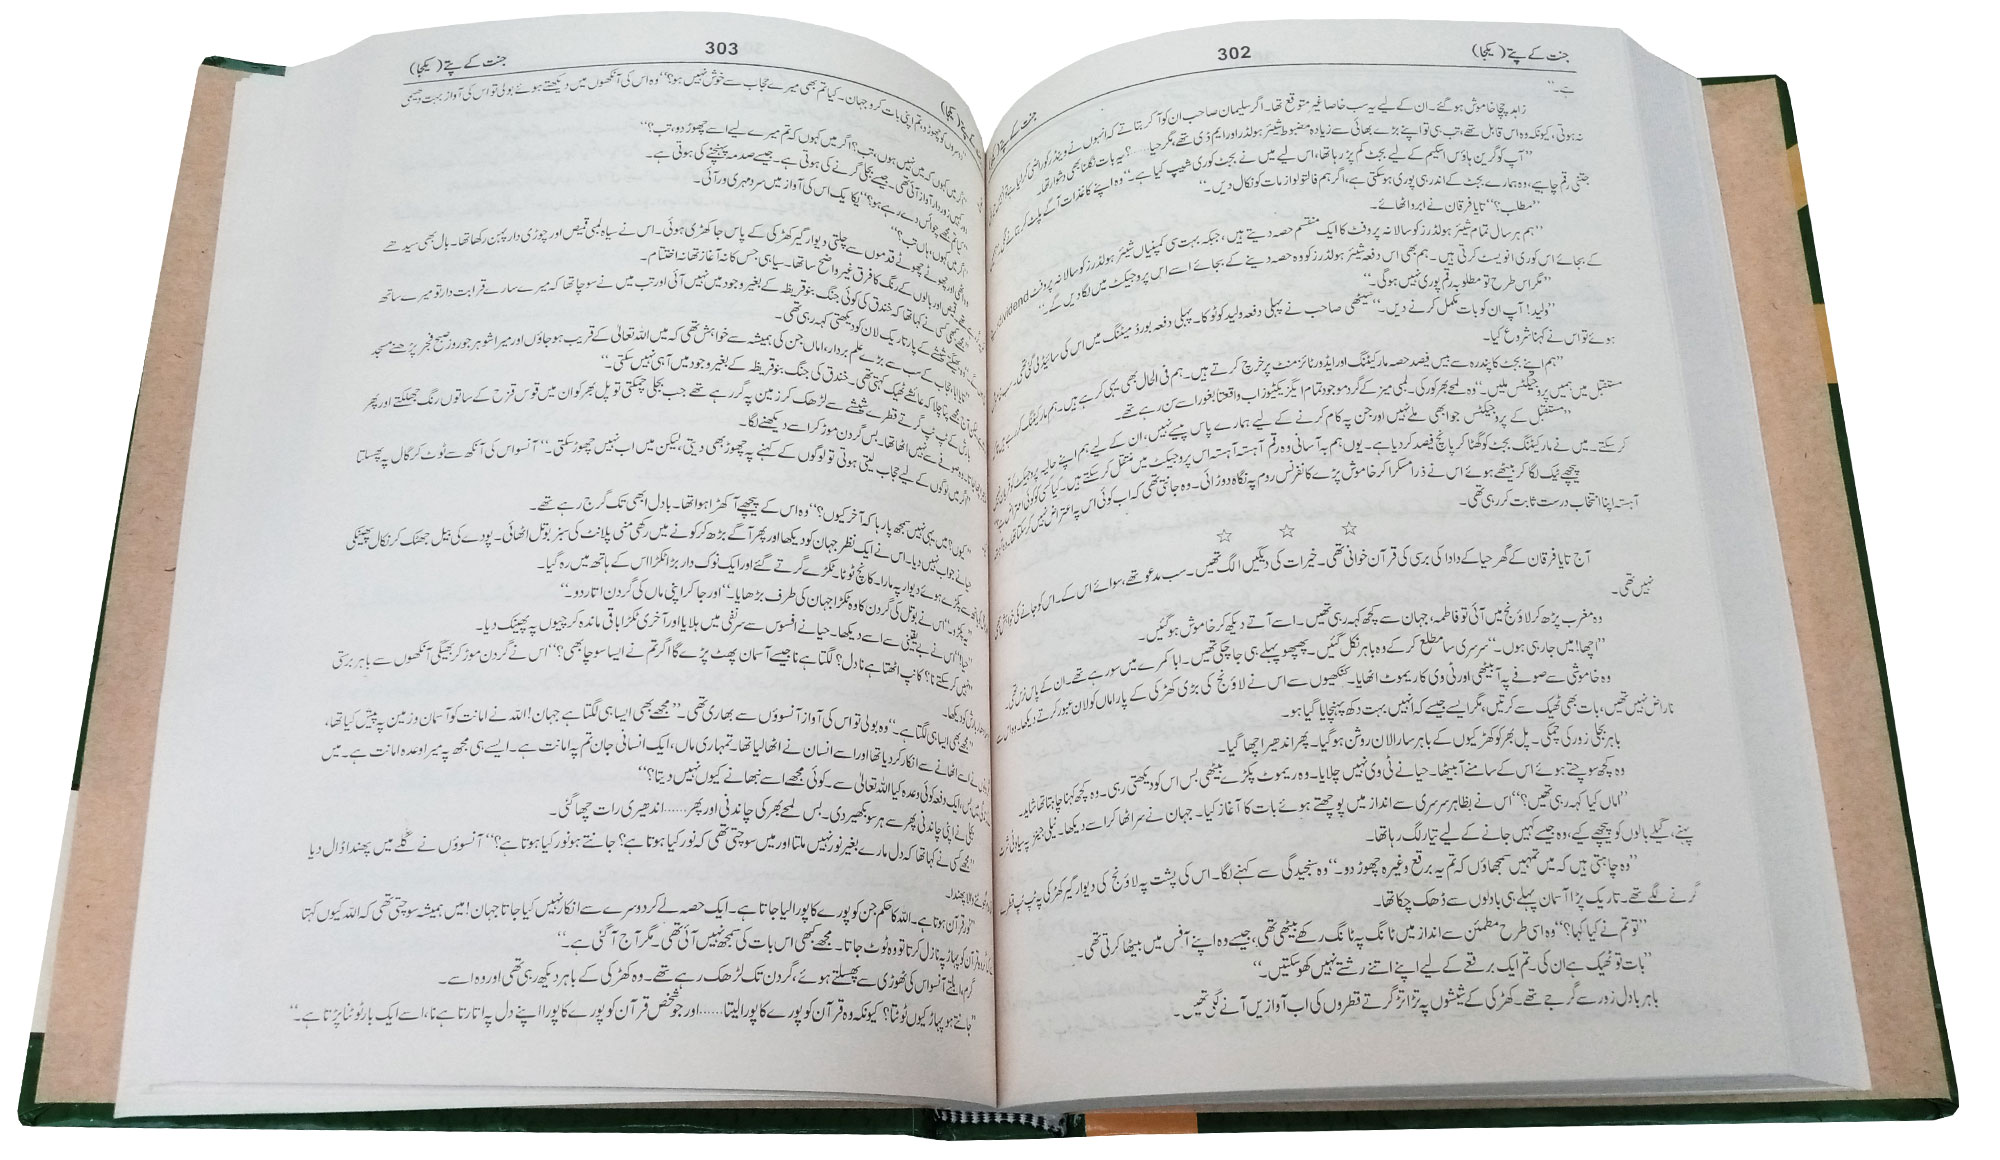 جنت کے پتے (یکجا)
302
ہے۔“
زاہد چچا خاموش ہو گئے۔ ان کے لیے یہ سب خاصا غیر متوقع تھا۔ اگر سلیمان صاحب ان کو آ کر بتاتے کہ انہوں نے وینڈر کو راضی کر لیا ہے
نہ ہوتی، کیونکہ وہ اس قابل تھے، تب ہی تو اپنے بڑے بھائی سے زیادہ مضبوط شیئر ہولڈر اور ایم ڈی تھے، مگر حیا......؟ یہ بات نگلنا بھی دشوار تھا۔
”آپ کو گرین ہاؤس اسکیم کے لیے بجٹ کم پڑ رہا تھا، اس لیے میں نے بجٹ کو ری شیپ کیا ہے۔“ وہ اپنے کاغذات آگے پلٹ کر بتانے لگی۔
جتنی رقم چاہیے، وہ ہمارے بجٹ کے اندر ہی پوری ہو سکتی ہے، اگر ہم فالتو لوازمات کو نکال دیں۔“
”مطلب؟“ تایا فرقان نے ابرو اٹھائے۔
”ہم ہر سال تمام شیئر ہولڈرز کو سالانہ پروفٹ کا ایک منقسم حصہ دیتے ہیں، جبکہ بہت سی کمپنیاں شیئر ہولڈرز کو سالانہ پروفٹ dividend
کے بجائے اس کو ری انویسٹ کرتی ہیں۔ ہم بھی اس دفعہ شیئر ہولڈرز کو وہ حصہ دینے کے بجائے اسے اس پروجیکٹ میں لگا دیں گے۔“
”مگر اس طرح تو مطلوبہ رقم پوری نہیں ہوگی۔“
”ولید! آپ ان کو بات مکمل کرنے دیں۔“ سیٹھی صاحب نے پہلی دفعہ ولید کو ٹوکا۔ پہلی دفعہ بورڈ میٹنگ میں اس کی سائیڈ لی گئی تھی۔
ہوئے تو اس نے کہنا شروع کیا۔
”ہم اپنے بجٹ کا پندرہ سے بیس فیصد حصہ مارکیٹنگ اور ایڈورٹائزمنٹ پر خرچ کرتے ہیں۔ ہم فی الحال بھی یہی کر رہے ہیں۔ ہم مارکیٹنگ
مستقبل میں ہمیں پروجیکٹس ملیں۔“ وہ لمحے بھر کو رکی۔ لمبی میز کے گرد موجود تمام ایگزیکٹیوز اب واقعتا بغور اسے سن رہے تھے۔
”مستقبل کے پروجیکٹس جو ابھی ملے نہیں اور جن پہ کام کرنے کے لیے ہمارے پاس پیسے نہیں، ان کے لیے ہم اپنے حالیہ پروجیکٹ کو
کر سکتے۔ میں نے مارکیٹنگ بجٹ کو گھٹا کر پانچ فیصد کر دیا ہے۔ یوں ہم بہ آسانی وہ رقم آہستہ آہستہ اس پروجیکٹ میں منتقل کر سکتے ہیں۔ کیا کسی کو کوئی اعتراض ہے؟“
پیچھے ٹیک لگا کر بیٹھے ہوئے اس نے ذرا مسکرا کر خاموش پڑے کانفرنس روم پہ نگاہ دوڑائی۔ وہ جانتی تھی کہ اب کوئی اس پہ اعتراض نہیں کر سکتا تھا۔
آہستہ اپنا انتخاب درست ثابت کر رہی تھی۔
☆ ☆ ☆
آج تایا فرقان کے گھر حیا کے دادا کی برسی کی قرآن خوانی تھی۔ خیرات کی دیگیں الگ تھیں۔ سب مدعو تھے، سوائے اس کے۔ اس کو جانے کی خواہش بھی
نہیں تھی۔
وہ مغرب پڑھ کر لاؤنج میں آئی تو فاطمہ، جہان سے کچھ کہہ رہی تھیں۔ اسے آتے دیکھ کر خاموش ہو گئیں۔
”اچھا! میں جا رہی ہوں۔“ سرسری سا مطلع کر کے وہ باہر نکل گئیں۔ پھپھو پہلے ہی جا چکی تھیں۔ ابا کمرے میں سو رہے تھے۔ ان کے پاس نرس تھی۔
وہ خاموشی سے صوفے پہ آ بیٹھی اور ٹی وی کا ریموٹ اٹھایا۔ کنکھیوں سے اس نے لاؤنج کی بڑی کھڑکی کے پار اماں کو لان عبور کرتے دیکھا۔ وہ اس سے
ناراض نہیں تھیں، بات بھی ٹھیک سے کرتیں، مگر ایسے جیسے کہ انہیں بہت دکھ پہنچایا گیا ہو۔
باہر بجلی زور کی چمکی۔ پل بھر کو کھڑکیوں کے باہر سارا لان روشن ہو گیا۔ پھر اندھیرا چھا گیا۔
وہ کچھ سوچتے ہوئے اس کے سامنے آ بیٹھا۔ حیا نے ٹی وی نہیں چلایا۔ وہ ریموٹ پکڑے بیٹھی بس اس کو دیکھتی رہی۔ وہ کچھ کہنا چاہتا تھا شاید۔
”اماں کیا کہہ رہی تھیں؟“ اس نے بظاہر سرسری سے انداز میں پوچھتے ہوئے بات کا آغاز کیا۔ جہان نے سر اٹھا کر اسے دیکھا۔ نیلی جینز پہ سیاہ ٹی شرٹ
پہنے، گیلے بالوں کو پیچھے کیے، وہ جیسے کہیں جانے کے لیے تیار لگ رہا تھا۔
”وہ چاہتی ہیں کہ میں تمہیں سمجھاؤں کہ تم یہ برقع وغیرہ چھوڑ دو۔“ وہ سنجیدگی سے کہنے لگا۔ اس کی پشت پہ لاؤنج کی دیوار گیر کھڑکی پہ ٹپ ٹپ قطرے
گرنے لگے تھے۔ تاریک پڑا آسمان پہلے ہی بادلوں سے ڈھک چکا تھا۔
”تو تم نے کیا کہا؟“ وہ اسی طرح مطمئن سے انداز میں ٹانگ پہ ٹانگ رکھے بیٹھی تھی، جیسے وہ اپنے آفس میں بیٹھا کرتی تھی۔
”بات تو ٹھیک ہے ان کی۔ تم ایک برقعے کے لیے اپنے اتنے رشتے نہیں کھو سکتیں۔“
باہر بادل زور سے گرجے تھے۔ کھڑکی کے شیشوں پہ تڑا تڑ گرتے قطروں کی اب آوازیں آنے لگی تھیں۔
303
جنت کے پتے (یکجا)
دوسروں کو چھوڑو، تم اپنی بات کرو جہان۔ کیا تم بھی میرے حجاب سے خوش نہیں ہو؟“ وہ اس کی آنکھوں میں دیکھتے ہوئے بولی تو اس کی آواز بہت دھیمی
”اگر میں کہوں کہ میں نہیں ہوں، تب؟ اگر میں کہوں کہ تم میرے لیے اسے چھوڑ دو، تب؟“
کہیں زوردار آواز آئی تھی۔ جیسے بجلی گرنے کی ہوتی ہے۔ جیسے صدمہ پہنچنے کی ہوتی ہے۔
”کیا تم مجھے چوائس دے رہے ہو؟“ یکایک اس کی آواز میں سرد مہری در آئی۔
”اگر میں کہوں، ہاں تب؟“
وہ اٹھی اور چھوٹے چھوٹے قدموں سے چلتی دیوار گیر کھڑکی کے پاس جا کھڑی ہوئی۔ اس نے سیاہ لمبی قمیص اور چوڑی دار پہن رکھا تھا۔ بال بھی سیدھے
قمیض اور بالوں کے رنگ کا فرق غیر واضح سا تھا۔ سیاہی جس کا نہ آغاز تھا نہ اختتام۔
”مجھے کبھی کسی نے کہا تھا کہ خندق کی کوئی جنگ بنو قریظہ کے بغیر وجود میں نہیں آئی اور تب میں نے سوچا تھا کہ میرے سارے قرابت دار تو میرے ساتھ
وہ بھیگے شیشے کے پار تاریک لان کو دیکھتی کہہ رہی تھی۔
”تایا ابا، حجاب کے سب سے بڑے علم بردار، اماں جن کی ہمیشہ سے خواہش تھی کہ میں اللہ تعالیٰ کے قریب ہو جاؤں اور میرا شوہر جو روز صبح فجر پڑھنے مسجد
آج مجھے پتا چلا کہ عائشے ٹھیک کہتی تھی۔ خندق کی جنگ بنو قریظہ کے بغیر وجود میں آ ہی نہیں سکتی۔“
بارش کے ٹپ ٹپ گرتے قطرے شیشے سے لڑھک کر زمین پہ گر رہے تھے جب بجلی چمکتی تو پل بھر کو ان میں قوس قزح کے ساتوں رنگ جھلکتے اور پھر
وہ صوفے سے نہیں اٹھا تھا۔ بس گردن موڑ کر اسے دیکھنے لگا۔
”اگر میں لوگوں کے لیے حجاب لیتی ہوتی تو لوگوں کے کہنے پہ چھوڑ بھی دیتی، لیکن میں اب نہیں چھوڑ سکتی۔“ آنسو اس کی آنکھ سے ٹوٹ کر گال پہ پھسلتا
”کیوں؟ میں یہی نہیں سمجھ پا رہا کہ آخر کیوں؟“ وہ اس کے پیچھے آ کھڑا ہوا تھا۔ بادل ابھی تک گرج رہے تھے۔
حیا نے جواب نہیں دیا۔ اس نے ایک نظر جہان کو دیکھا اور پھر آگے بڑھ کر کونے میں رکھی منی پلانٹ کی سبز بوتل اٹھائی۔ پودے کی بیل جھٹک کر نکال پھینکی
سے پکڑے ہوئے دیوار پہ مارا۔ کانچ ٹوٹا۔ ٹکڑے گرتے گئے اور ایک نوک دار بڑا ٹکڑا اس کے ہاتھ میں رہ گیا۔
”یہ پکڑو۔“ اس نے بوتل کی گردن کا وہ ٹکڑا جہان کی طرف بڑھایا۔ ”اور جا کر اپنی ماں کی گردن اتار دو۔“
”حیا!“ اس نے بے یقینی سے اسے دیکھا۔ حیا نے افسوس سے سر نفی میں ہلایا اور آخری ٹکڑا باقی ماندہ کرچیوں پہ پھینک دیا۔
”نہیں کر سکتے نا؟ کانپ اٹھتا ہے نا دل؟ لگتا ہے نا جیسے آسمان پھٹ پڑے گا اگر تم نے ایسا سوچا بھی؟“ اس نے گردن موڑ کر بھیگی آنکھوں سے باہر برستی
بارش کو دیکھا۔
”مجھے بھی ایسا ہی لگتا ہے۔“ وہ بولی تو اس کی آواز آنسوؤں سے بھاری تھی۔ ”مجھے بھی ایسا ہی لگتا ہے جہان! اللہ نے امانت کو آسمان و زمین پہ پیش کیا تھا،
نے اسے اٹھانے سے انکار کر دیا تھا اور اسے انسان نے اٹھا لیا تھا۔ تمہاری ماں، ایک انسانی جان تم پہ امانت ہے۔ ایسے ہی مجھ پہ میرا وعدہ امانت ہے۔ میں
بس، ایک دفعہ کوئی وعدہ کیا اللہ تعالیٰ سے۔ کوئی مجھے اسے نبھانے کیوں نہیں دیتا؟“
بجلی نے اپنی چاندنی پھر سے ہر سو بکھیر دی۔ بس لمحے بھر کی چاندنی اور پھر...... اندھیری رات چھا گئی۔
”مجھے کسی نے کہا تھا کہ دل مارے بغیر نور نہیں ملتا اور میں سوچتی تھی کہ نور کیا ہوتا ہے؟ جانتے ہو نور کیا ہوتا ہے؟“ آنسوؤں نے گلے میں پھندا ڈال دیا
والا پھندا۔
”نور قرآن ہوتا ہے۔ اللہ کا حکم جن کو پورے کا پورا لیا جاتا ہے۔ ایک حصہ لے کر دوسرے سے انکار نہیں کیا جاتا جہان! میں ہمیشہ سوچتی تھی کہ اللہ کیوں کہتا
قرآن کو پہاڑ پہ نازل کرتا تو وہ ٹوٹ جاتا۔ مجھے کبھی اس بات کی سمجھ نہیں آئی تھی۔ مگر آج آ گئی ہے۔“
گرم، ابلتے آنسو اس کی ٹھوڑی سے پھسلتے ہوئے، گردن تک لڑھک رہے تھے۔ وہ کھڑکی کے باہر دیکھ رہی تھی اور وہ اسے۔
”جانتے ہو پہاڑ کیوں ٹوٹتا؟ کیونکہ وہ قرآن کو پورے کا پورا لیتا...... اور جو شخص قرآن کو پورے کا پورا اپنے دل پہ اتارتا ہے نا، اسے ایک بار ٹوٹنا پڑتا ہے۔“